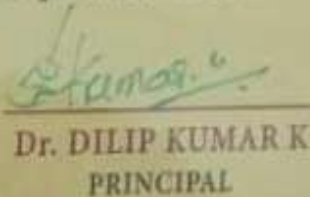 Dr. DILIP KUMAR K
PRINCIPAL